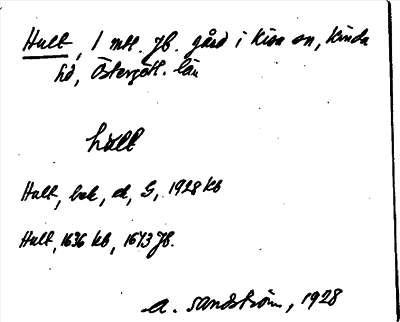 Hult, 1 mtl. Jb. gård i Kisa sn, Kinda
hd, Östergötl. län
hult
Hult, bek, d, G, 1928 kb
Hult, 1636 kb, 1673 Jb.
A. Sandström, 1928